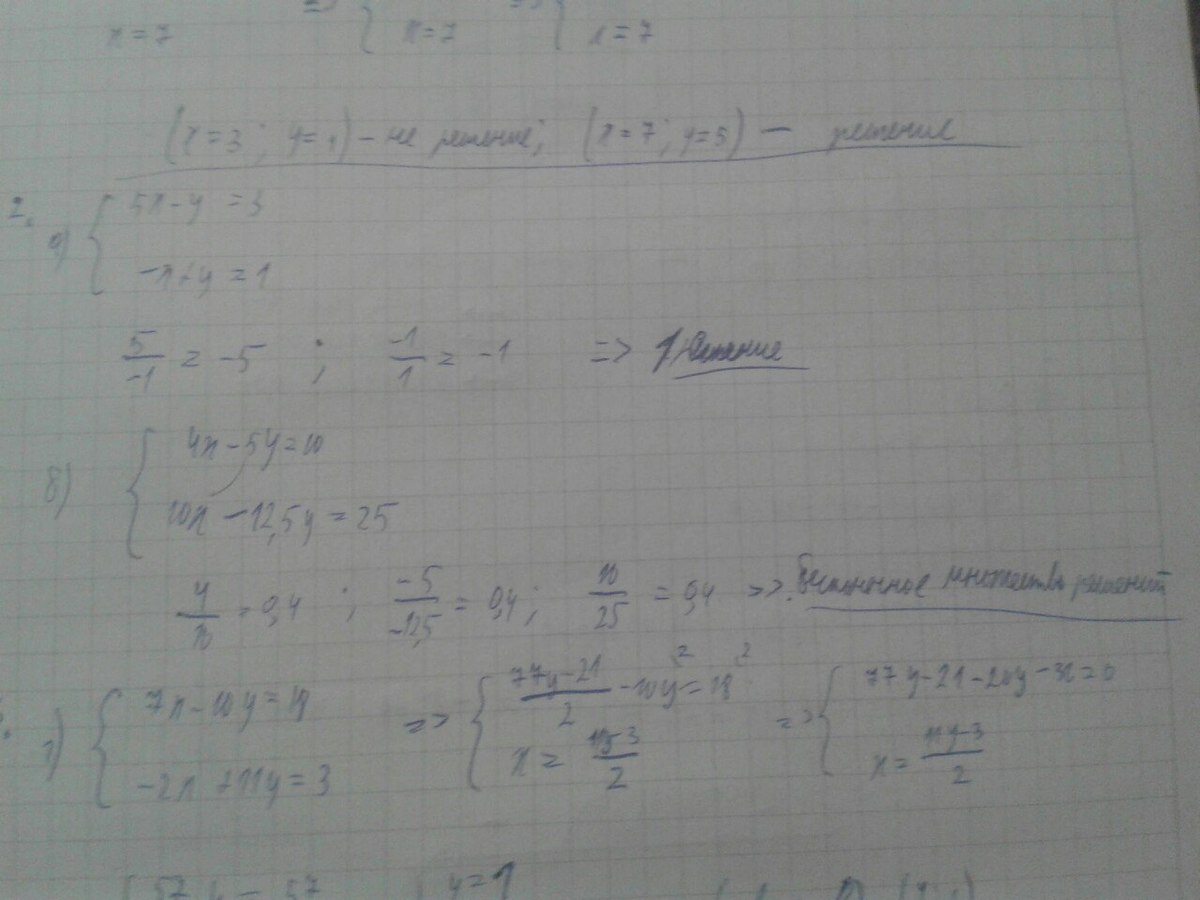 x=7 => { x=7 => { x=7
(x=3; y=1) – не решение; (x=7; y=5) – решение
2. а) { 5x-y=3
-x+y=1
5/-1 = -5 ; -1/1 = -1 => 1 решение
в) { 4x-5y=10
10x-12,5y=25
4/10 = 0,4 ; -5/-12,5 = 0,4 ; 10/25 = 0,4 => Бесконечное множество решений
1) { 7x-10y=18 => { (77y-21)/2 -10y=18 => { 77y-21-20y-36=0
-2x+11y=3 x= (11y-3)/2 x= (11y-3)/2
57y=57 { y=1